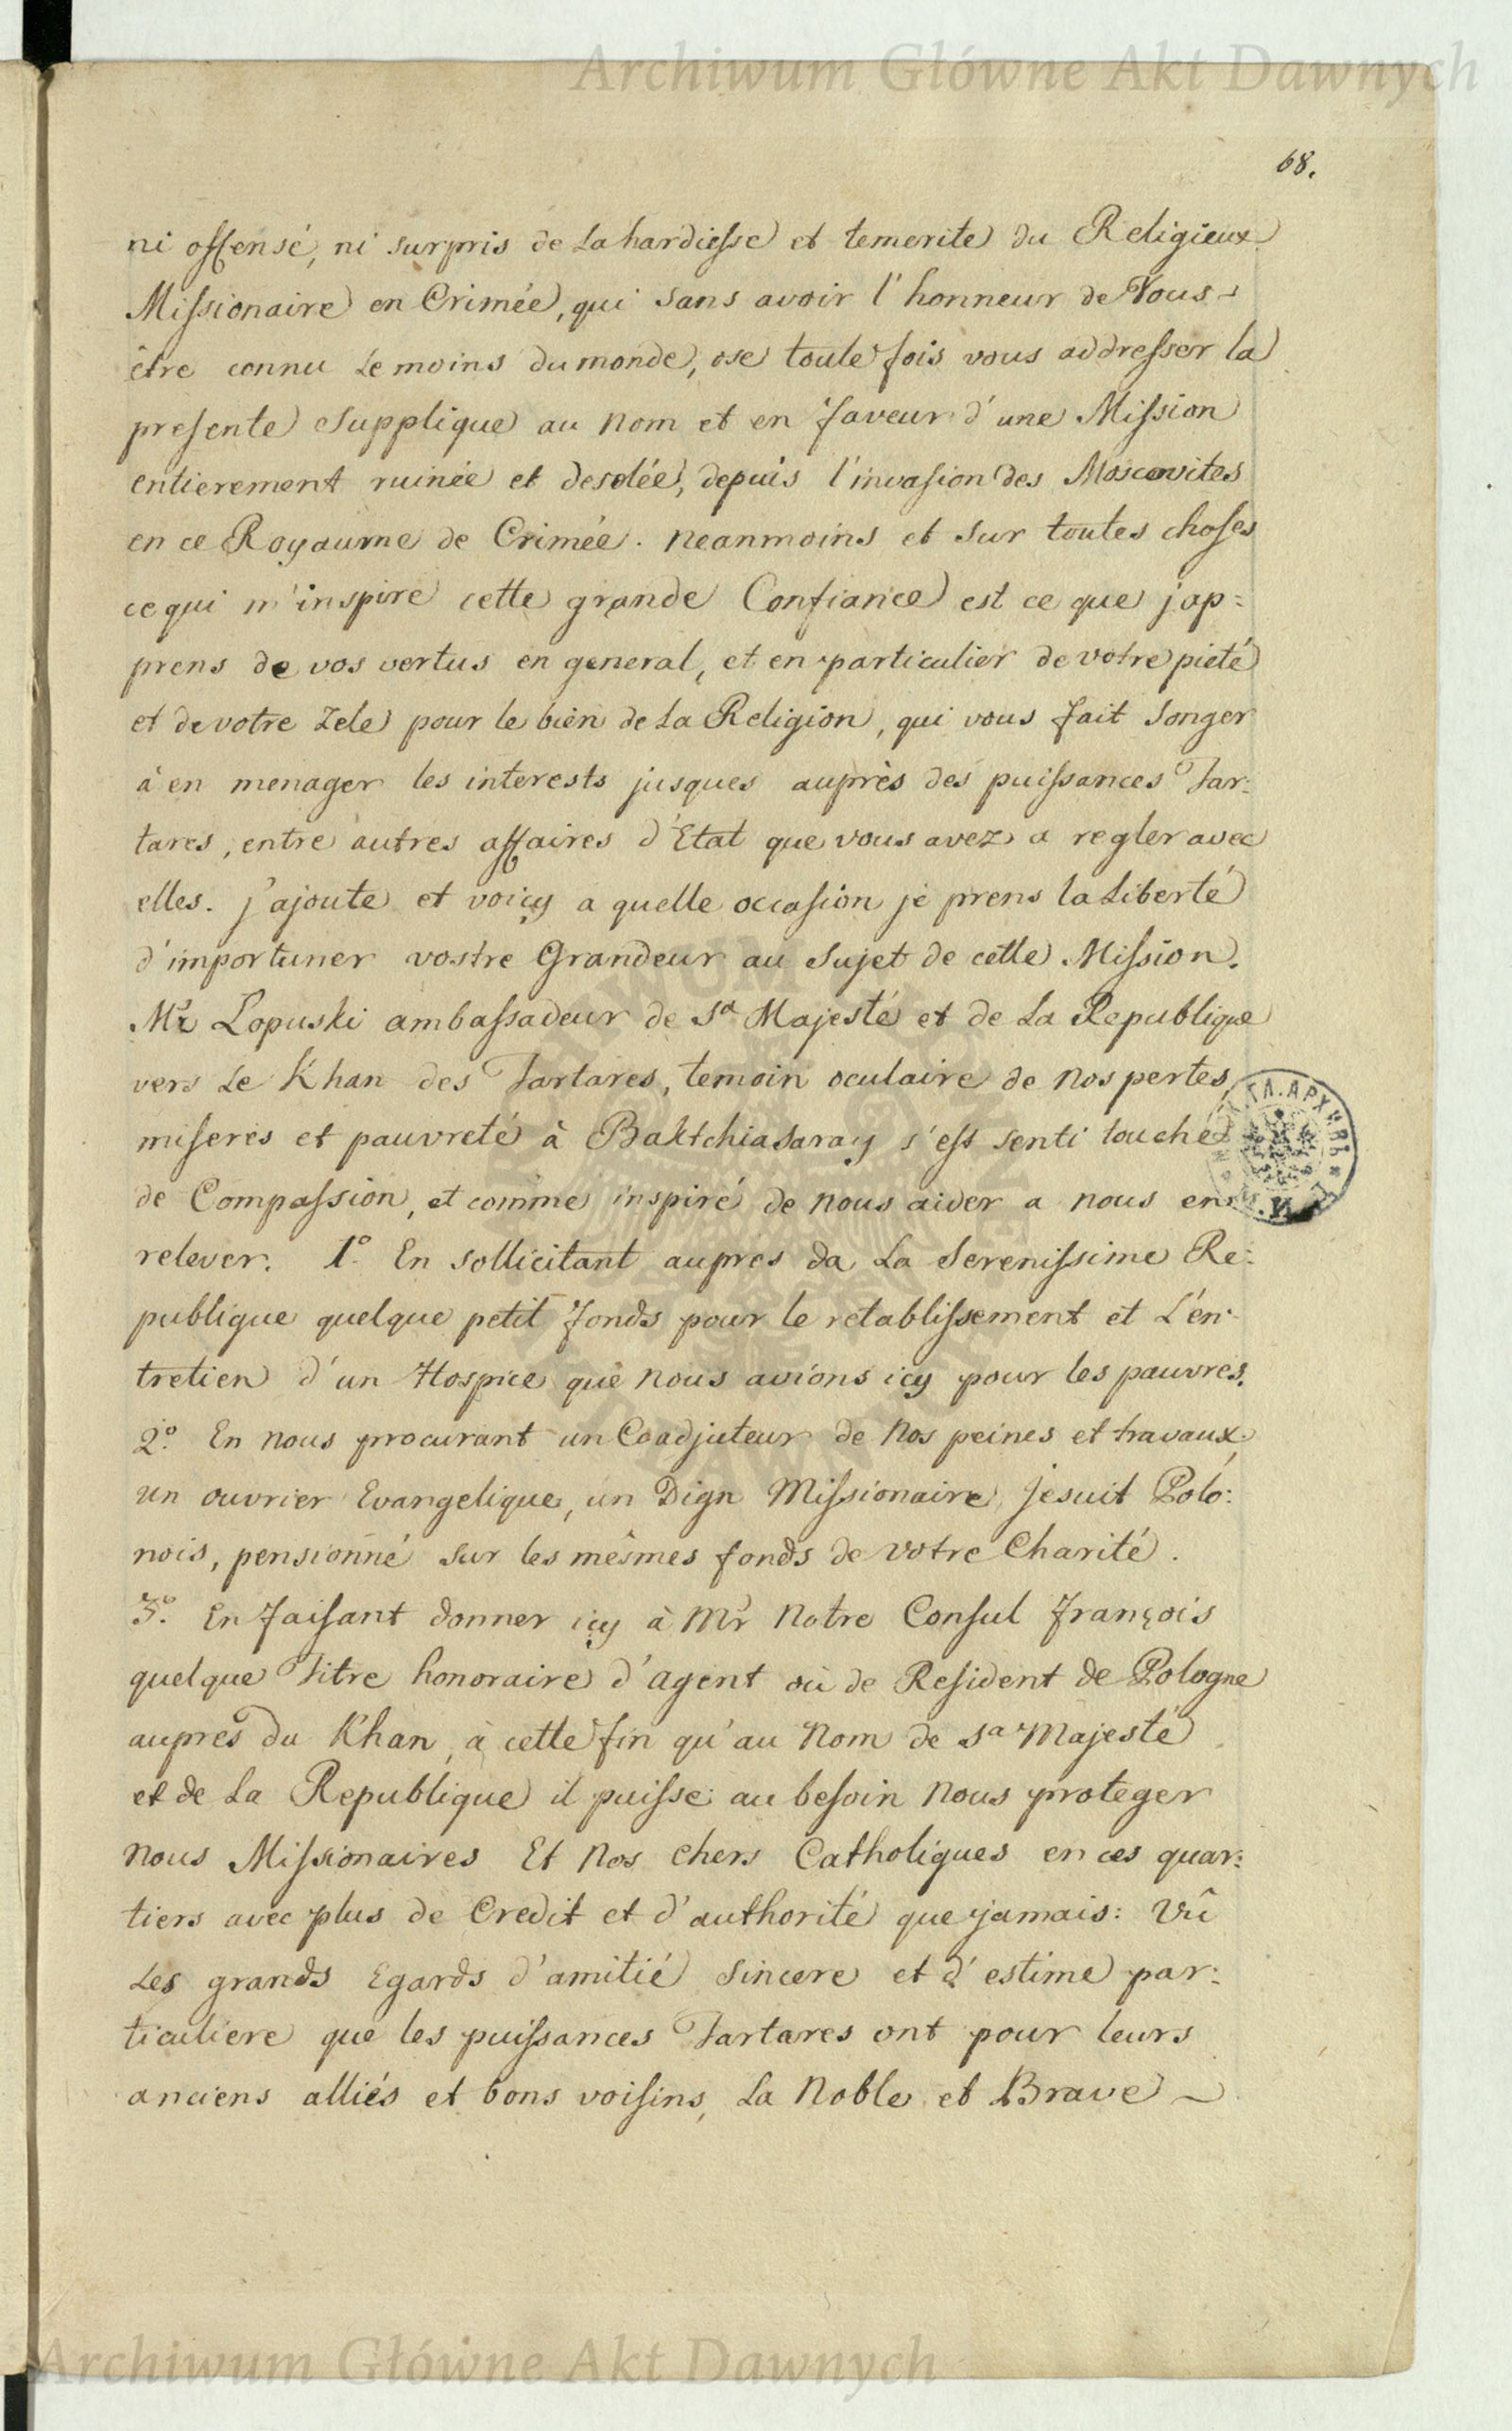 Archiwum Główne Akt Dawnych
68.
ni offensé, ni surpris de La hardiesse et temerite du Religieux
Missionaire en Crimée, qui sans avoir l'honneur de Vous
être connu Le moins du monde, ose toute fois vous addresser la
presente Supplique au Nom et en faveur d'une Mission
entierement ruinée et desolée, depuis l'invasion des Moscovites
en ce Royaume de Crimée. Neanmoins et sur toutes choses
ce qui m'inspire cette grande Confiance est ce que j'ap=
prens de vos vertus en general, et en particulier de votre pieté
et de votre Zele pour le bien de La Religion, qui vous fait songer
à en menager les interests jusques auprès des puissances Tar:
tares, entre autres affaires d'Etat que vous avez a regler avec
elles. j'ajoute et voicy a quelle occasion je prens la Liberté
d'importuner vostre Grandeur au Sujet de cette Mission.
Mr Lopuski ambassadeur de Sa Majesté et de La Republique
vers Le Khan des Tartares, temoin oculaire de Nos pertes,
miseres et pauvreté à Baktchiasaray s'est senti touché
de Compassion, et comme inspiré de nous aider a nous en
relever. 1º. En sollicitant aupres da La Serenissime Re:
publique quelque petit fonds pour le retablissement et L'en-
tretien d'un Hospice que nous avions icy pour les pauvres.
2º. En nous procurant un Coadjuteur de Nos peines et travaux,
un ouvrier Evangelique, un Dign Missionaire Jesuit Polo:
nois, pensionné sur les mêmes fonds de votre Charité.
3º. En faisant donner icy à Mr Notre Consul François
quelque Titre honoraire d'agent ou de Resident de Pologne
aupres du Khan, à cette fin qu'au Nom de Sa Majesté
et de La Republique il puisse au besoin Nous proteger
Nous Missionaires Et Nos chers Catholiques en ces quar:
tiers avec plus de Credit et d'authorité que jamais: Vû
Les grands Egards d'amitié Sincere et d'estime par:
ticuliere que les puissances Tartares ont pour leurs
anciens alliés et bons voisins, La Noble et Brave
Archiwum Główne Akt Dawnych